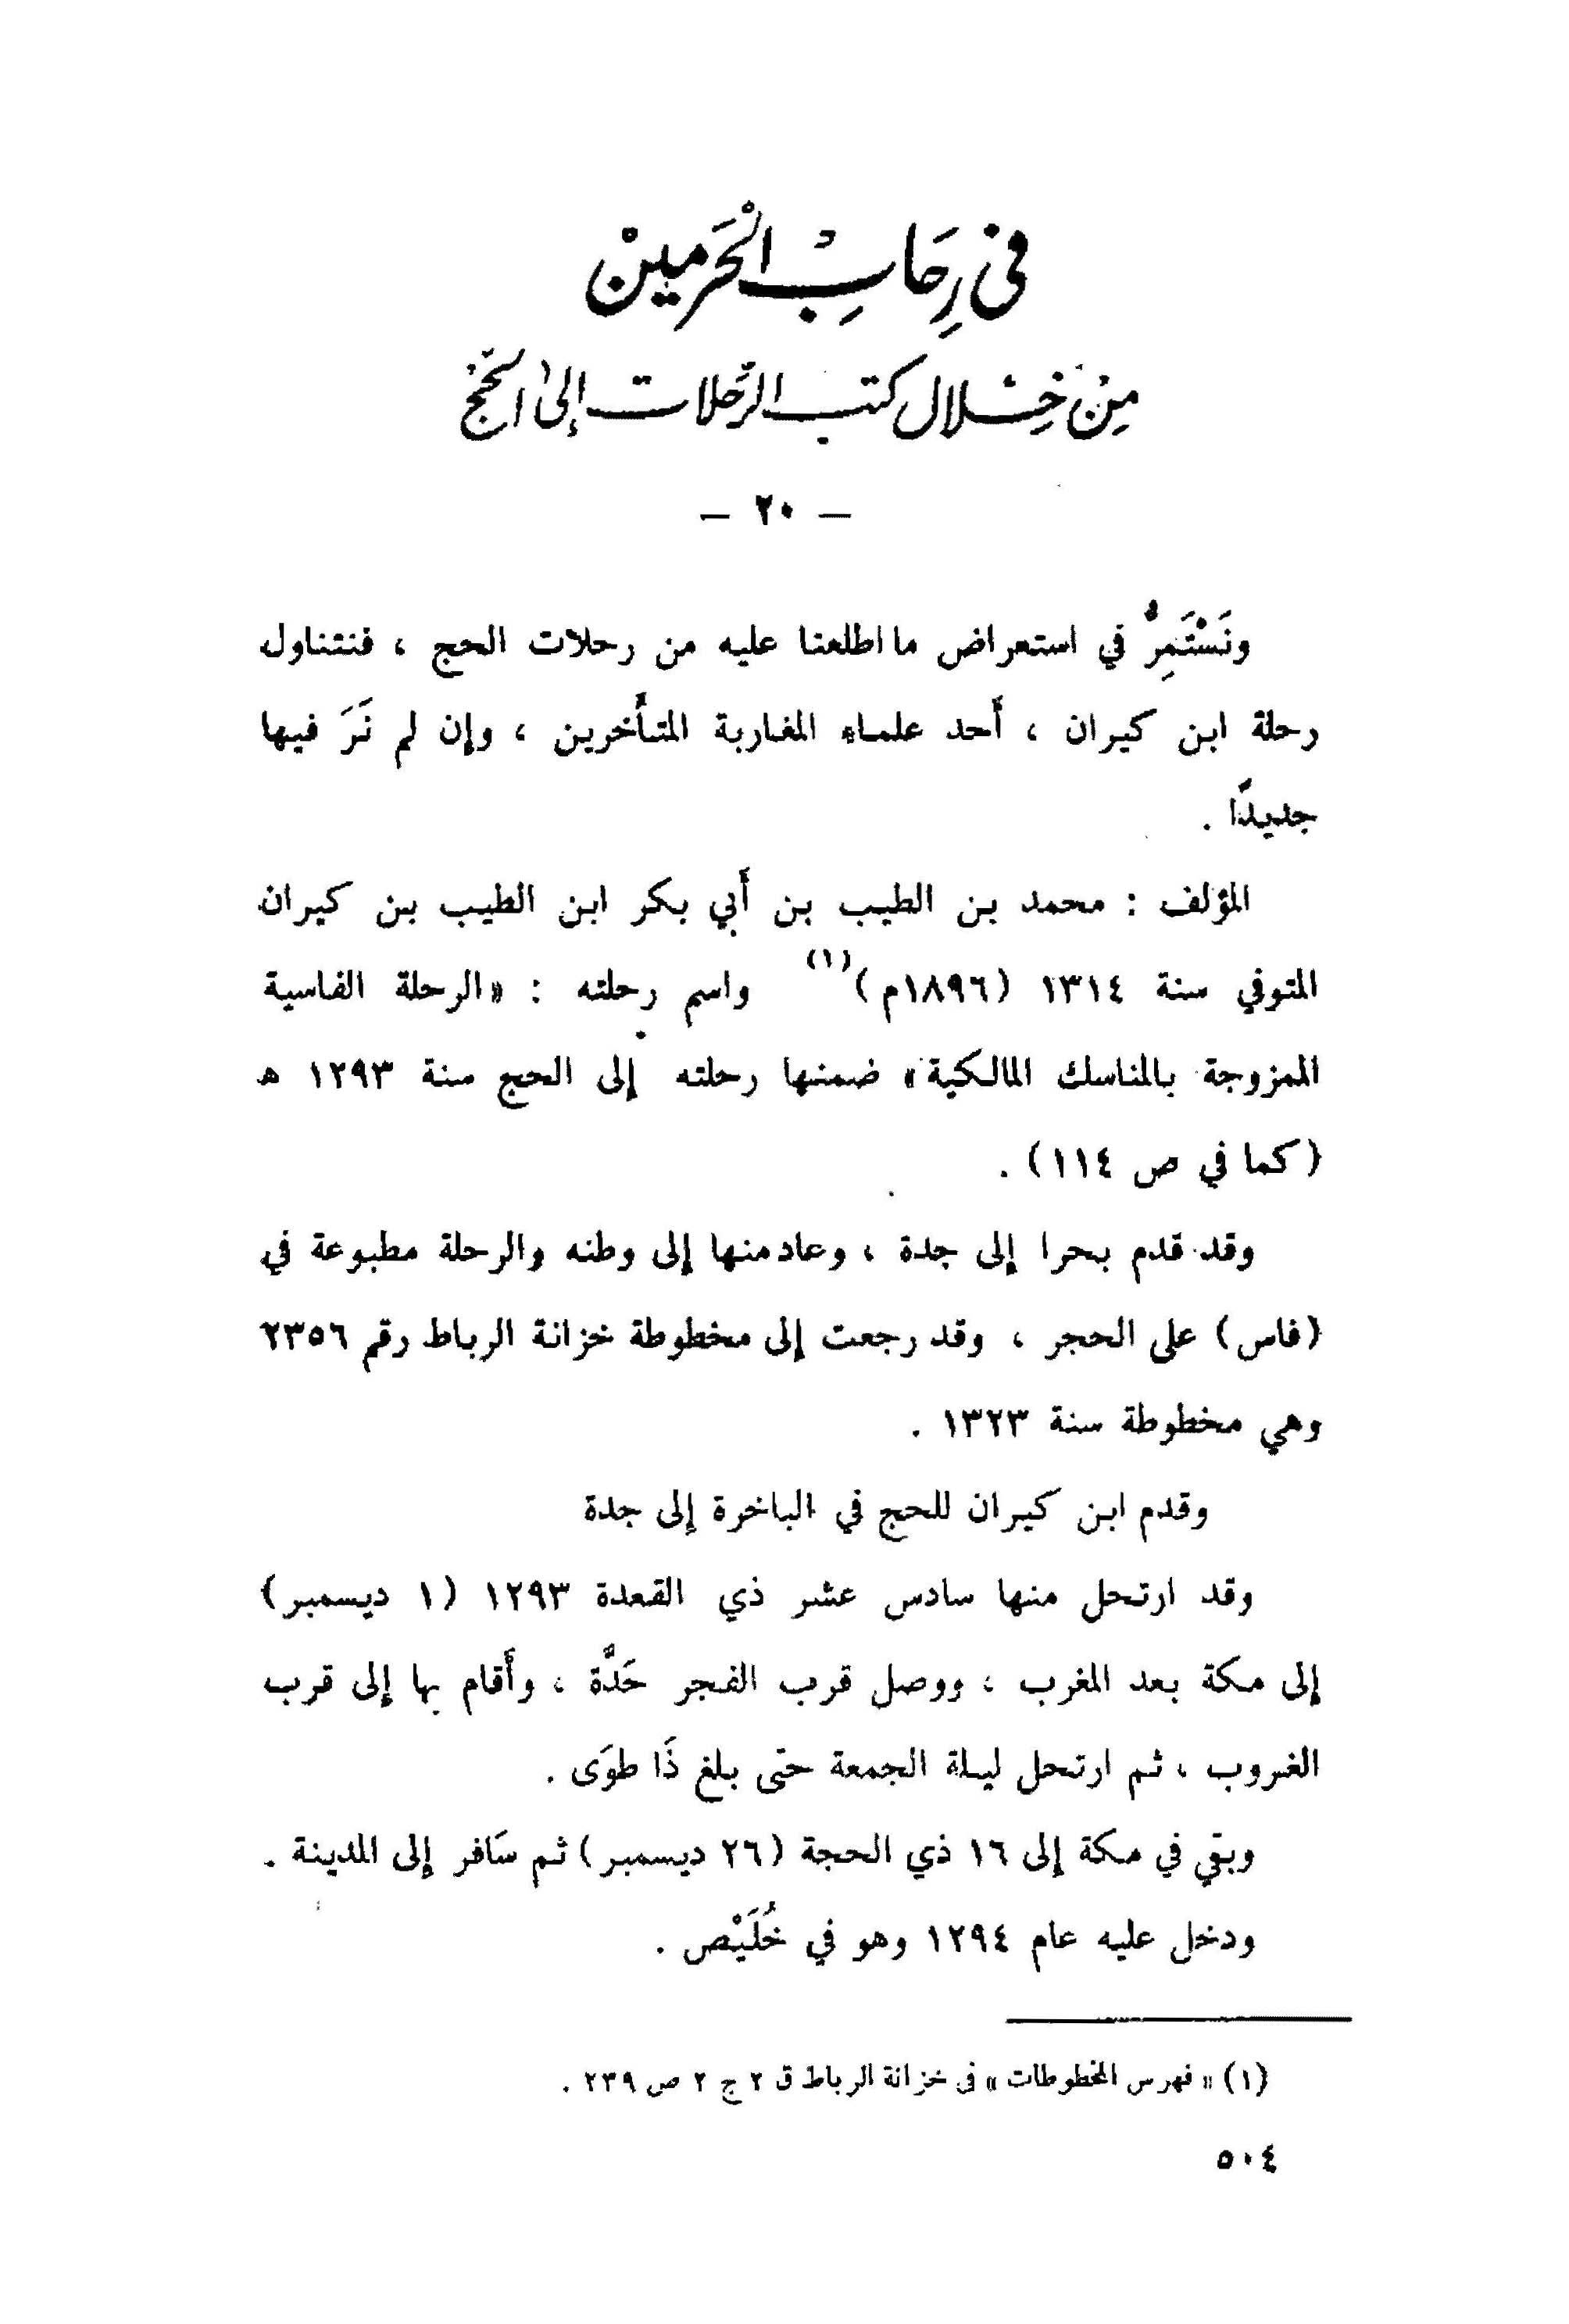 في رِحَابِ الْحَرَمينْ
مِنْ خِلال كتب الرّحلات إلى الحَجّ
— ٢٠ —
ونَسْتَمِرُّ في استعراض ما اطلعنا عليه من رحلات الحج ، فنتناول
رحلة ابن كيران ، أَحد علماء المغاربة المتأَخرين ، وإن لم نَرَ فيها
جديدًا .
المؤلف : محمد بن الطيب بن أَبي بكر ابن الطيب بن كيران
المتوفي سنة ١٣١٤ (١٨٩٦م)(١) واسم رحلته : «الرحلة الفاسية
الممزوجة بالمناسك المالكية» ضمنها رحلته إلى الحج سنة ١٢٩٣ هـ
(كما في ص ١١٤) .
وقد قدم بحرا إلى جدة ، وعاد منها إلى وطنه والرحلة مطبوعة في
(فاس) على الحجر ، وقد رجعت إلى مخطوطة خزانة الرباط رقم ٢٣٥٦
وهي مخطوطة سنة ١٣٢٣ .
وقدم ابن كيران للحج في الباخرة إلى جدة
وقد ارتحل منها سادس عشر ذي القعدة ١٢٩٣ (١ ديسمبر)
إلى مكة بعد المغرب ، ووصل قرب الفجر حَدَّة ، وأَقام بها إلى قرب
الغروب ، ثم ارتحل ليلة الجمعة حتى بلغ ذَا طوَى .
وبقي في مكة إلى ١٦ ذي الحجة (٢٦ ديسمبر) ثم سَافر إلى المدينة .
ودخل عليه عام ١٢٩٤ وهو في خُلَيْص .
(١) «فهرس المخطوطات» في خزانة الرباط ق ٢ ج ٢ ص ٢٣٩ .
٥٠٤